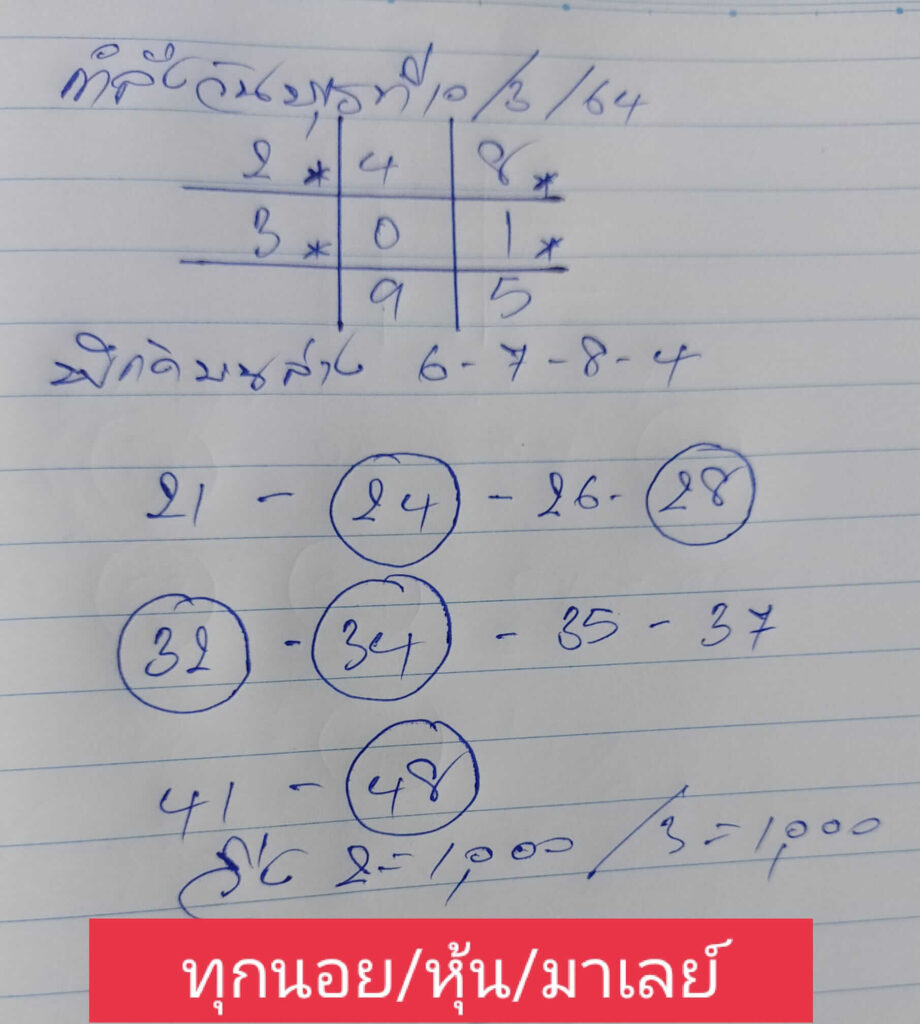 กำลังวันพุธที่ 10/3/64
2* 4 8*
3* 0 1*
9 5
พิกัดบนล่าง 6-7-8-4
21 - 24 - 26 - 28
32 - 34 - 35 - 37
41 - 48
วิ่ง 2=1,000 / 3=1,000
ทุกนอย/หุ้น/มาเลย์